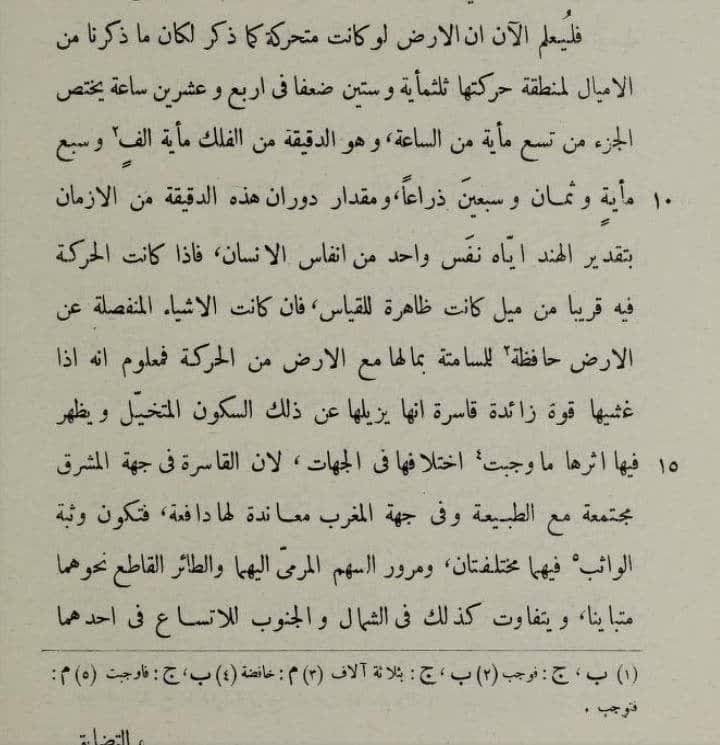 فليُعلم الآن ان الارض لو كانت متحركة كما ذكر لكان ما ذكرنا من
الاميال لمنطقة حركتها ثلثمأية وستين ضعفا فى اربع وعشرين ساعة يختص
الجزء من تسع مأية من الساعة، وهو الدقيقة من الفلك مأية الفٍ٢ وسبع
١٠ مأيةٍ وثمان وسبعينَ ذراعاً، ومقدار دوران هذه الدقيقة من الازمان
بتقدير الهند ايّاه نفَس واحد من انفاس الانسان، فاذا كانت الحركة
فيه قريبا من ميل كانت ظاهرة للقياس، فان كانت الاشياء المنفصلة عن
الارض حافظة٢ للسامتة بمالها مع الارض من الحركة فمعلوم انه اذا
غشيها قوة زائدة قاسرة انها يزيلها عن ذلك السكون المتخيّل ويظهر
١٥ فيها اثرها ماوجبت٤ اختلافها فى الجهات، لان القاسرة فى جهة المشرق
مجتمعة مع الطبيعة وفى جهة المغرب معاندة لها دافعة، فتكون وثبة
الواثب٥ فيهما مختلفتان، ومرور السهم المرمىّ اليهما والطائر القاطع نحوهما
متباينا، ويتفاوت كذلك فى الشمال والجنوب للاتساع فى احدهما
(١) ب، ج: فوجب (٢) ب، ج: بثلاثة آلاف (٣) م: خافضة (٤) ب، ج: فاوجبت (٥) م:
فتوجب.
، التضايق